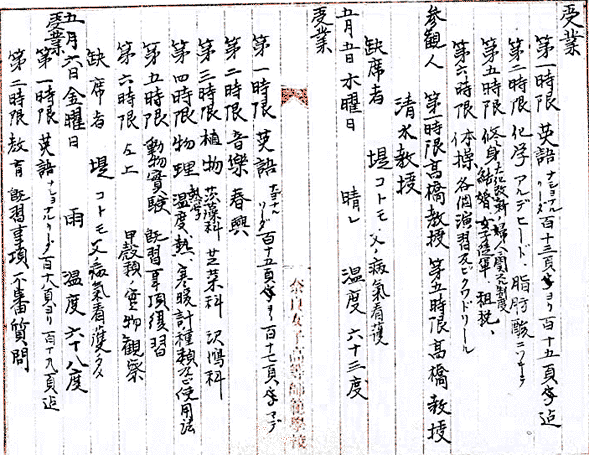 受業
第一時限 英語 ナショナルリーダー 百十三頁ヨリ百十五頁迠
第二時限 化学 アルデヒード、脂肪酸ニツキテ
第五時限 修身 大化改新ノ婦人ニ関スル制度 結婚、女子従軍、租税、
第六時限 体操 各個演習及ビクワドリール
参観人 第一時限髙橋教授 第五時限髙橋教授
清水教授
缺席者 堤コトモ 父ノ病氣看護
五月五日 木曜日 晴レ 温度 六十三度
受業
第一時限 英語 ナショナルリーダー 百十五頁ヨリ百十七頁マデ
第二時限 音樂 春興
第三時限 植物 莎藻科 芝菜科 沢瀉科
第四時限 物理 熱学 温度、熱、寒暖計種類及ビ使用法
第五時限 動物實験 既習事項復習
第六時限 仝上 甲殻類ノ実物観察
缺席者 堤コトモ 父ノ病氣看護ノタメ
五月六日 金曜日 雨 温度 六十八度
受業
第一時限 英語 ナショナルリーダー百十八頁ヨリ百十九頁迠
第二時限 教育 既習事項不審質問
奈良女子高等師範學校